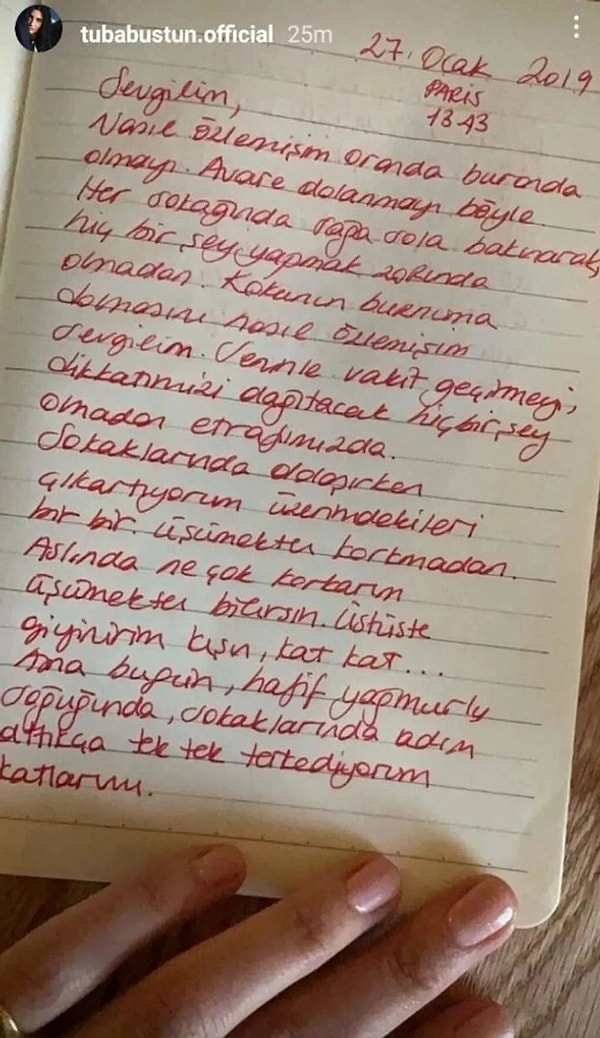 tubabustun.official 25m
27. Ocak 2019
PARİS
13.43
Sevgilim,
Nasıl özlemişim oranda buranda
olmayı. Avare dolanmayı böyle.
Her sokağında sağa sola bakınarak,
hiç bir şey yapmak zorunda
olmadan. Kokunun burnuma
dolmasını nasıl özlemişim
sevgilim. Seninle vakit geçirmeyi,
dikkatimizi dağıtacak hiç bir şey
olmadan etrafımızda.
Sokaklarında dolaşırken
çıkartıyorum üzerimdekileri
bir bir. Üşümekten korkmadan.
Aslında ne çok korkarım
üşümekten bilirsin. Üstüste
giyinirim kışın, kat kat...
Ama bugün, hafif yağmurlu
soğuğunda, sokaklarında adım
attıkça tek tek terkediyorum
katlarımı.